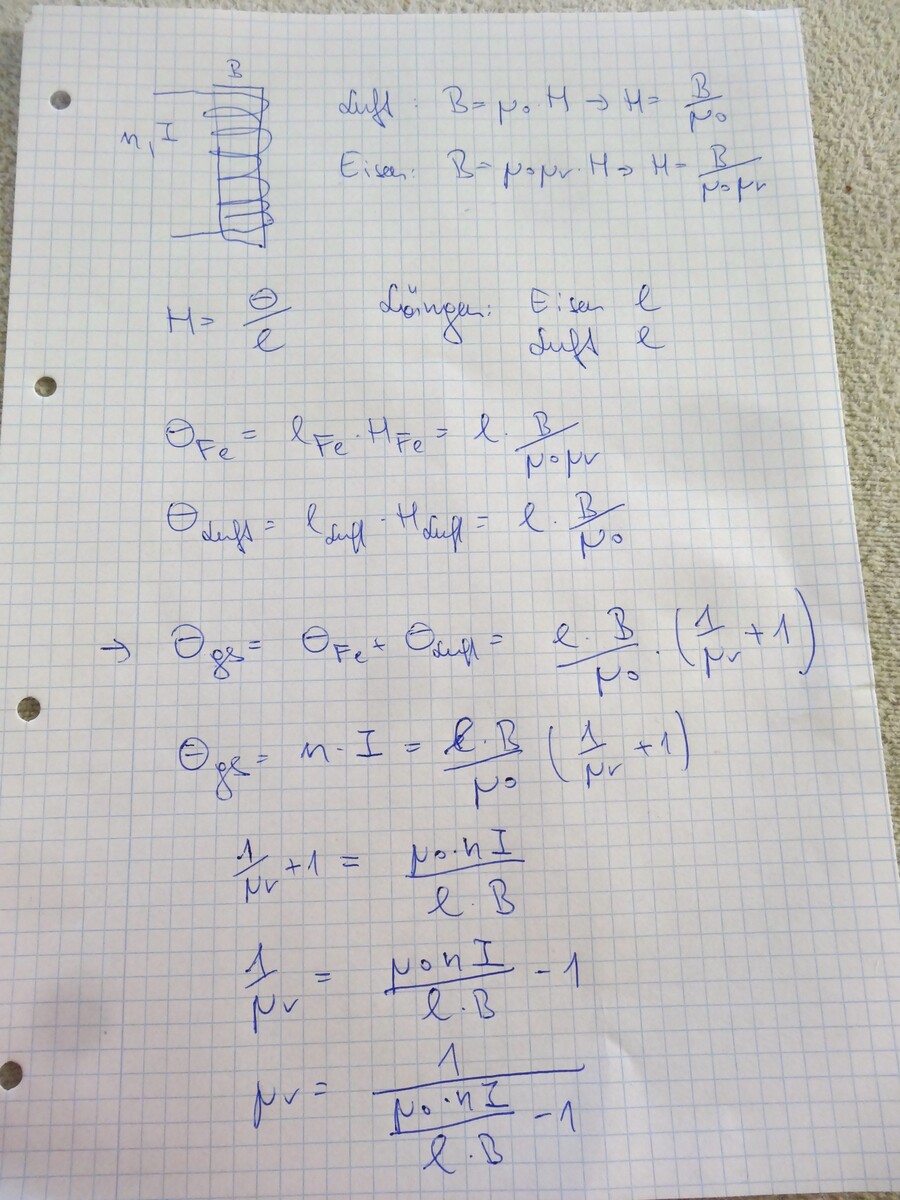 B
n, I
Luft: B = μ₀ · H → H = B/μ₀
Eisen: B = μ₀μr · H → H = B/(μ₀μr)
H = Θ/l Längen: Eisen l
Luft l
Θ_Fe = l_Fe · H_Fe = l · B/(μ₀μr)
Θ_Luft = l_Luft · H_Luft = l · B/μ₀
→ Θ_ges = Θ_Fe + Θ_Luft = (l · B)/μ₀ · (1/μr + 1)
Θ_ges = n · I = (l · B)/μ₀ (1/μr + 1)
1/μr + 1 = (μ₀ · n I)/(l · B)
1/μr = (μ₀ n I)/(l · B) - 1
μr = 1/((μ₀ · n I)/(l · B) - 1)